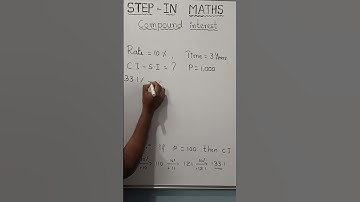 STEP-IN MATHS
Compound interest
Rate = 10% , Time = 3 Years
CI - SI = ? P = 1,000
33.1%
If P = 100 then CI
100 110 121 133.1